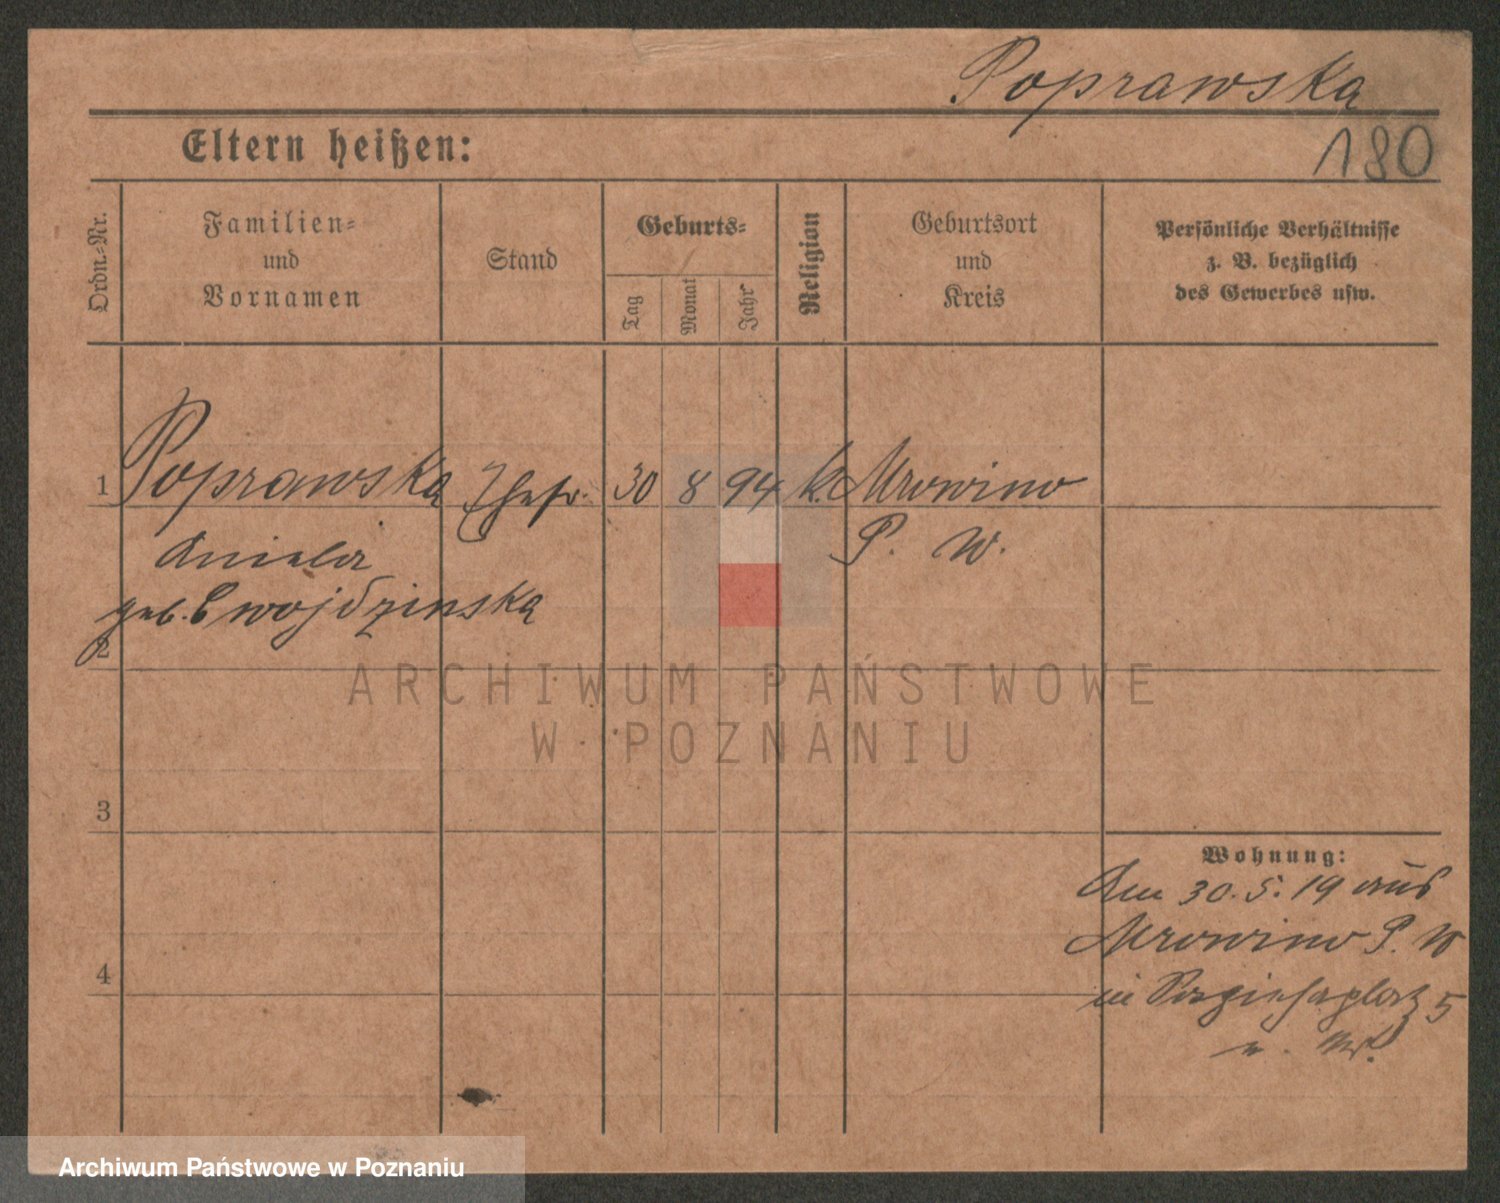 Poprawska
180
Eltern heißen:
Ordn.-Nr.
Familien- und Vornamen
Stand
Geburts-
Tag
Monat
Jahr
Religion
Geburtsort und Kreis
Persönliche Verhältnisse
z. B. bezüglich
des Gewerbes usw.
1 Poprawska Ehefr. 30 8 94 k. Mrowino
Aniela P. W.
geb. Cwojdzinska
2
ARCHIWUM PAŃSTWOWE
W POZNANIU
3
Wohnung:
Am 30.5.19 aus
Mrowino P. W
4
in 5
Archiwum Państwowe w Poznaniu